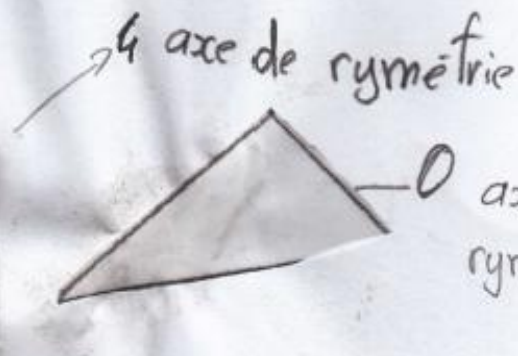 4 axe de rymétrie
0 ax
rym